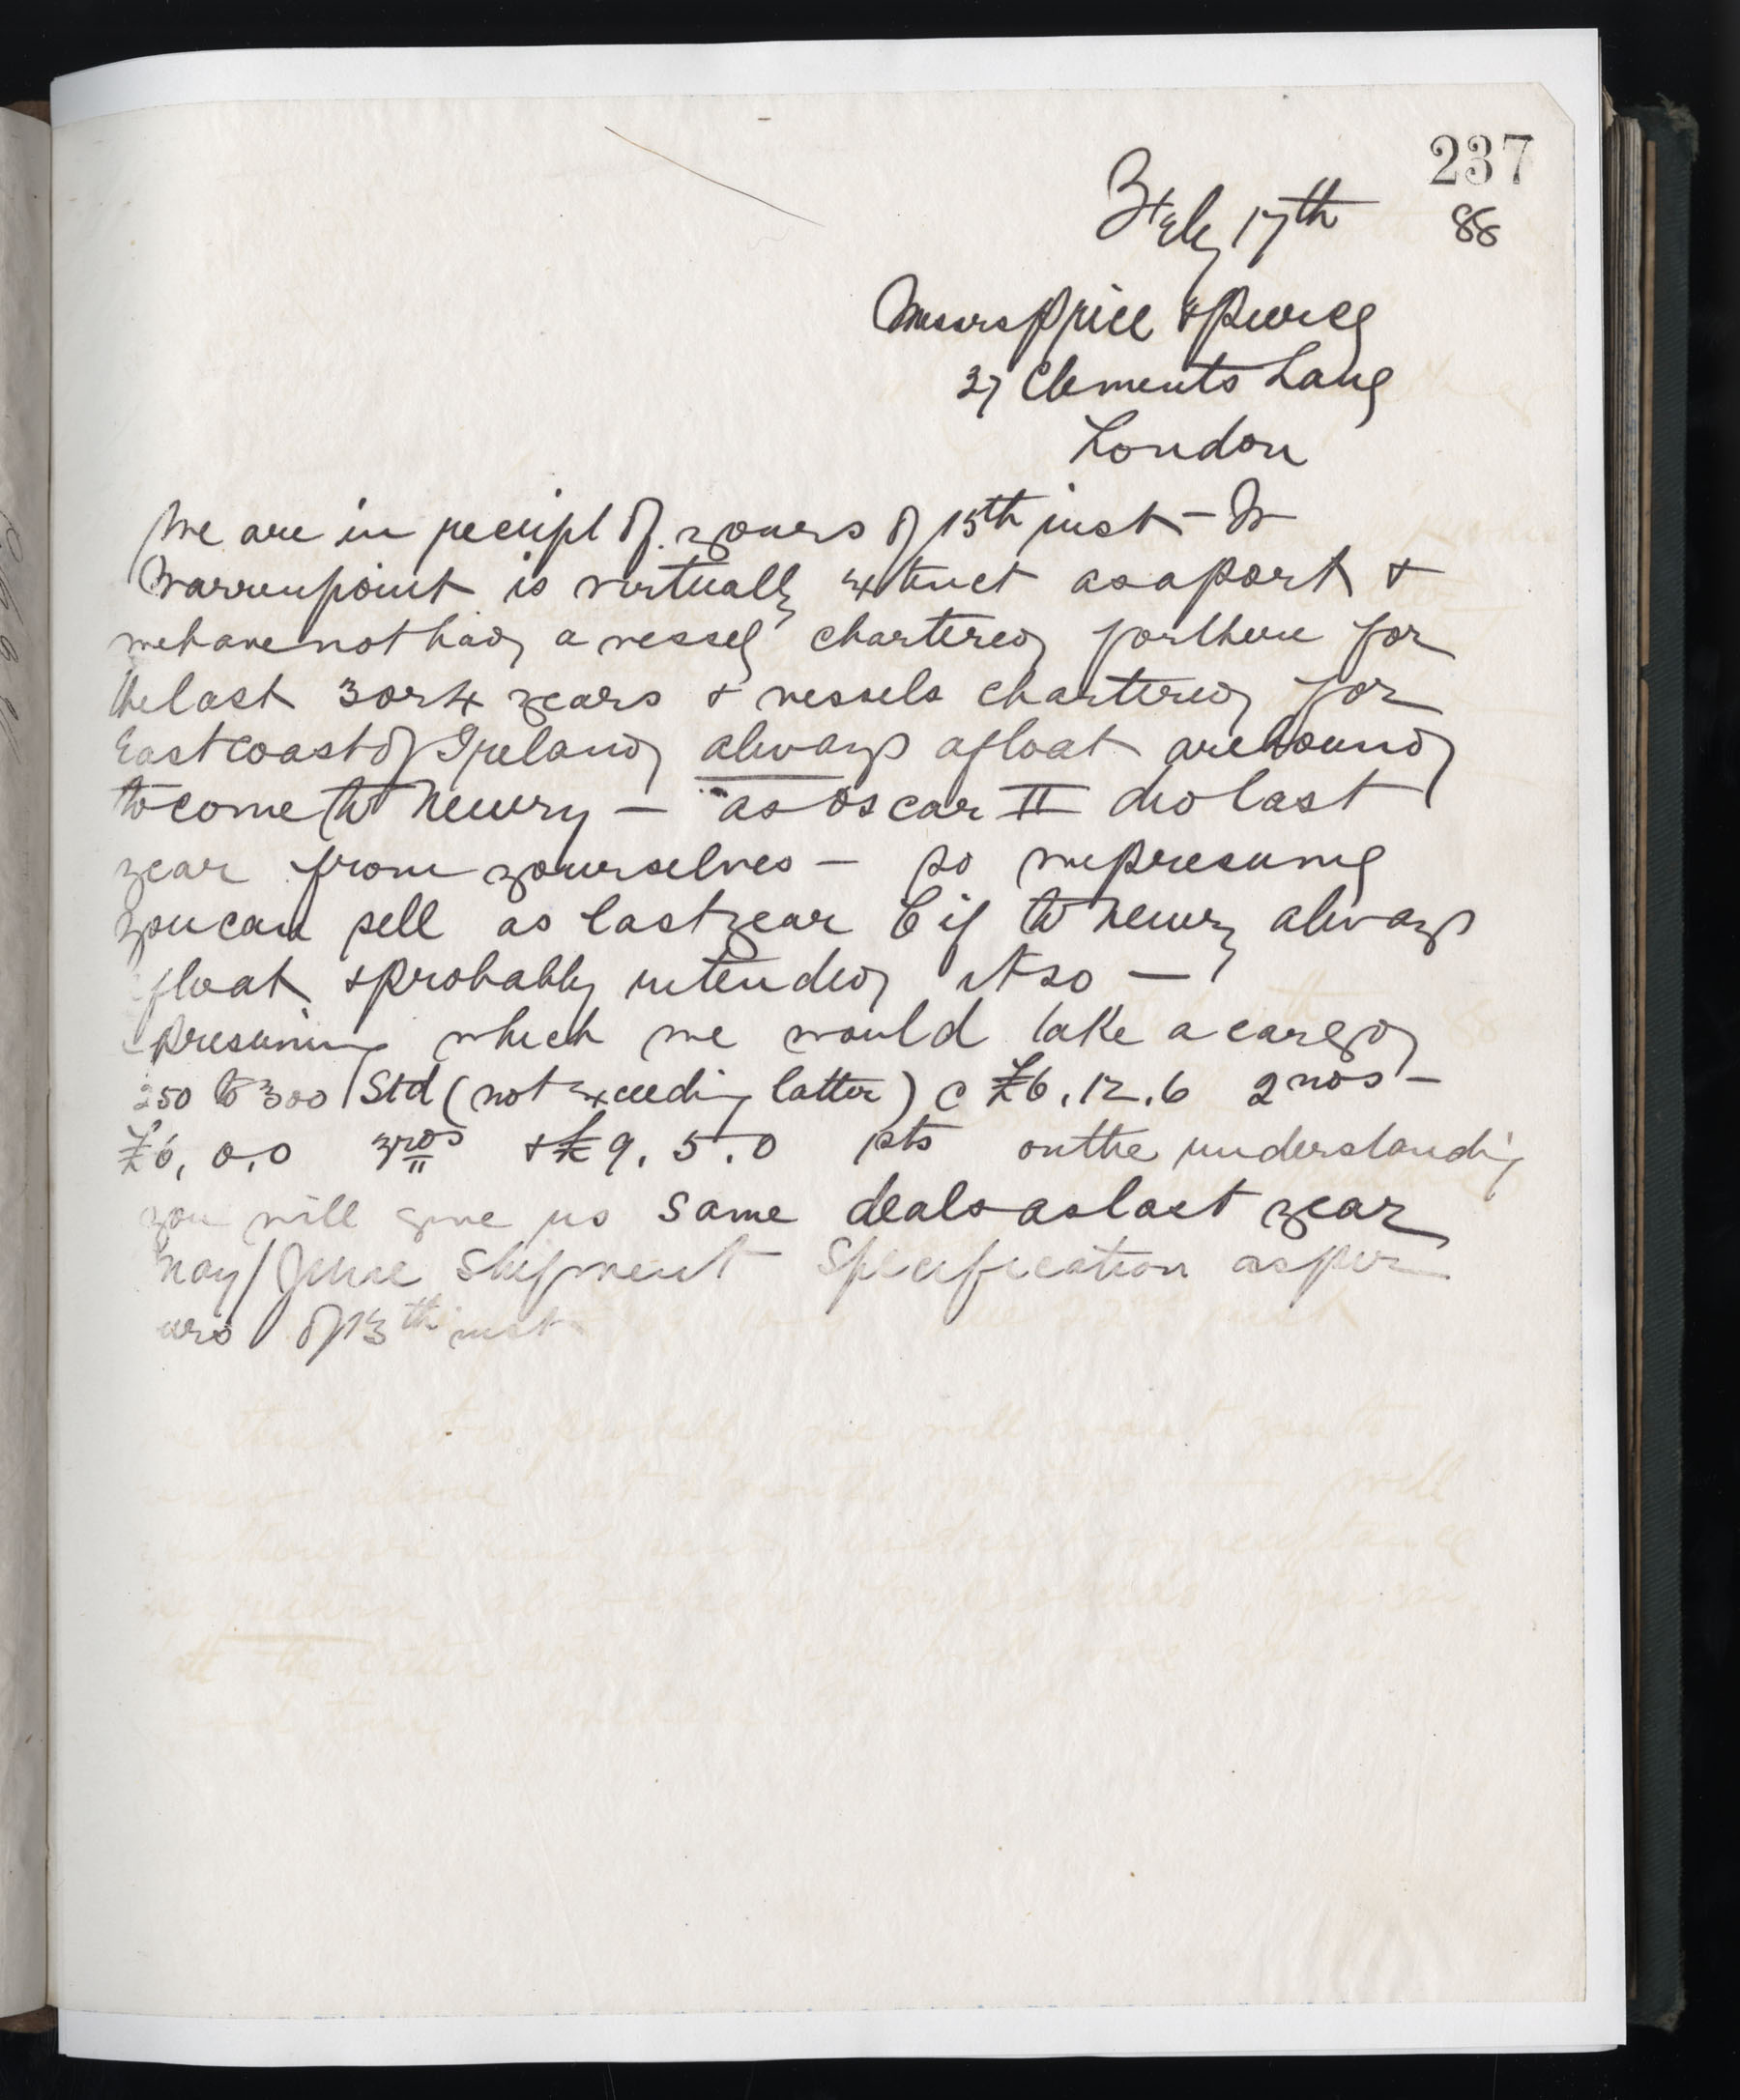 237
Feby 17th 88
Messrs Price & Pierce
27 Clements Lane
London
We are in receipt of yours of 15th inst -
Warrenpoint is virtually extinct as a port &
we have not had a vessel chartered for there for
the last 3 or 4 years & vessels chartered for
East coast of Ireland always afloat are bound
to come to Newry - as Oscar II did last
year from yourselves - so we presume
you can sell as last year C i f to Newry always
afloat & probably intended it so -
presuming which we would take a cargo
250 to 300 Std (not exceeding latter) @ £6.12.6 2nds -
£6.0.0 3rds & £9.5.0 1sts on the understanding
you will give us same deals as last year
May/June Shipment Specification as per
ours of 13th inst